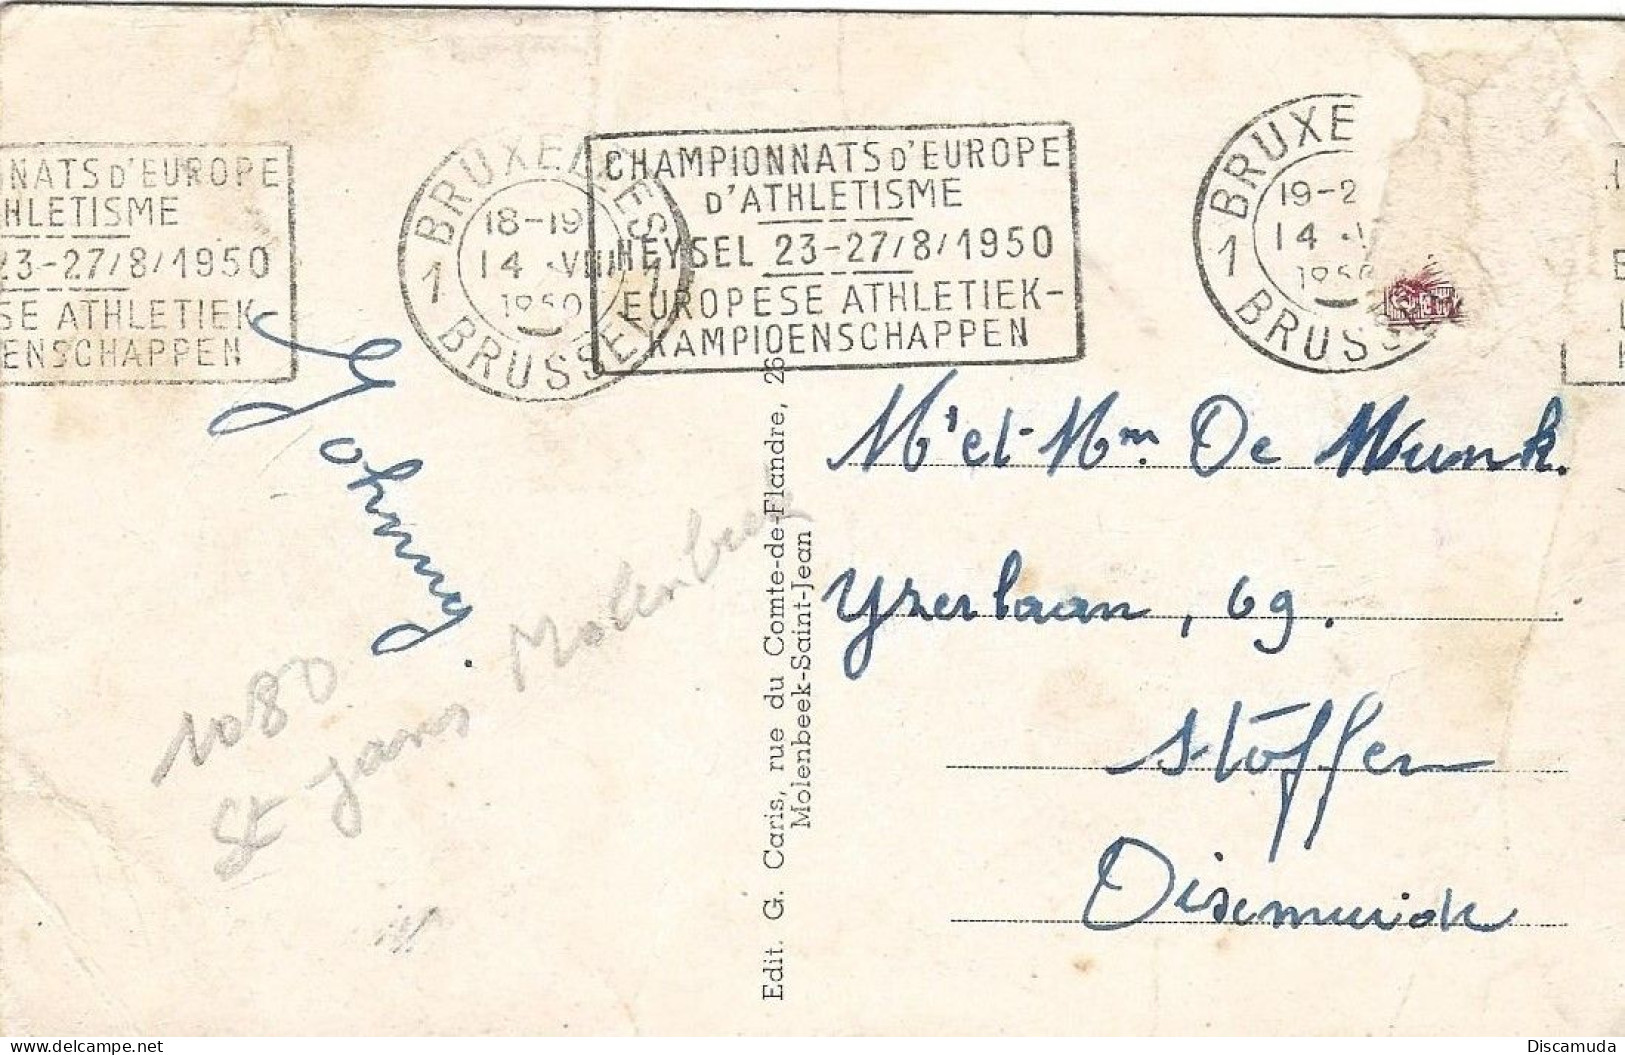 NNATS D'EUROPE
HLETISME
23-27/8/1950
SE ATHLETIEK
ENSCHAPPEN
BRUXELLES
18-19
14 -VIII
1950
1 1
BRUSSEL
CHAMPIONNATS D'EUROPE
D'ATHLETISME
HEYSEL 23-27/8/1950
EUROPESE ATHLETIEK-
KAMPIOENSCHAPPEN
BRUXE
19-2
14 -V
1950
1
BRUSS
Johnny.
1080
St Jans Molenbeek
Edit. G. Caris, rue du Comte-de-Flandre, 26
Molenbeek-Saint-Jean
Mr et Mm De Munk.
Yzerlaan, 69.
Delcampe.net
Discamuda